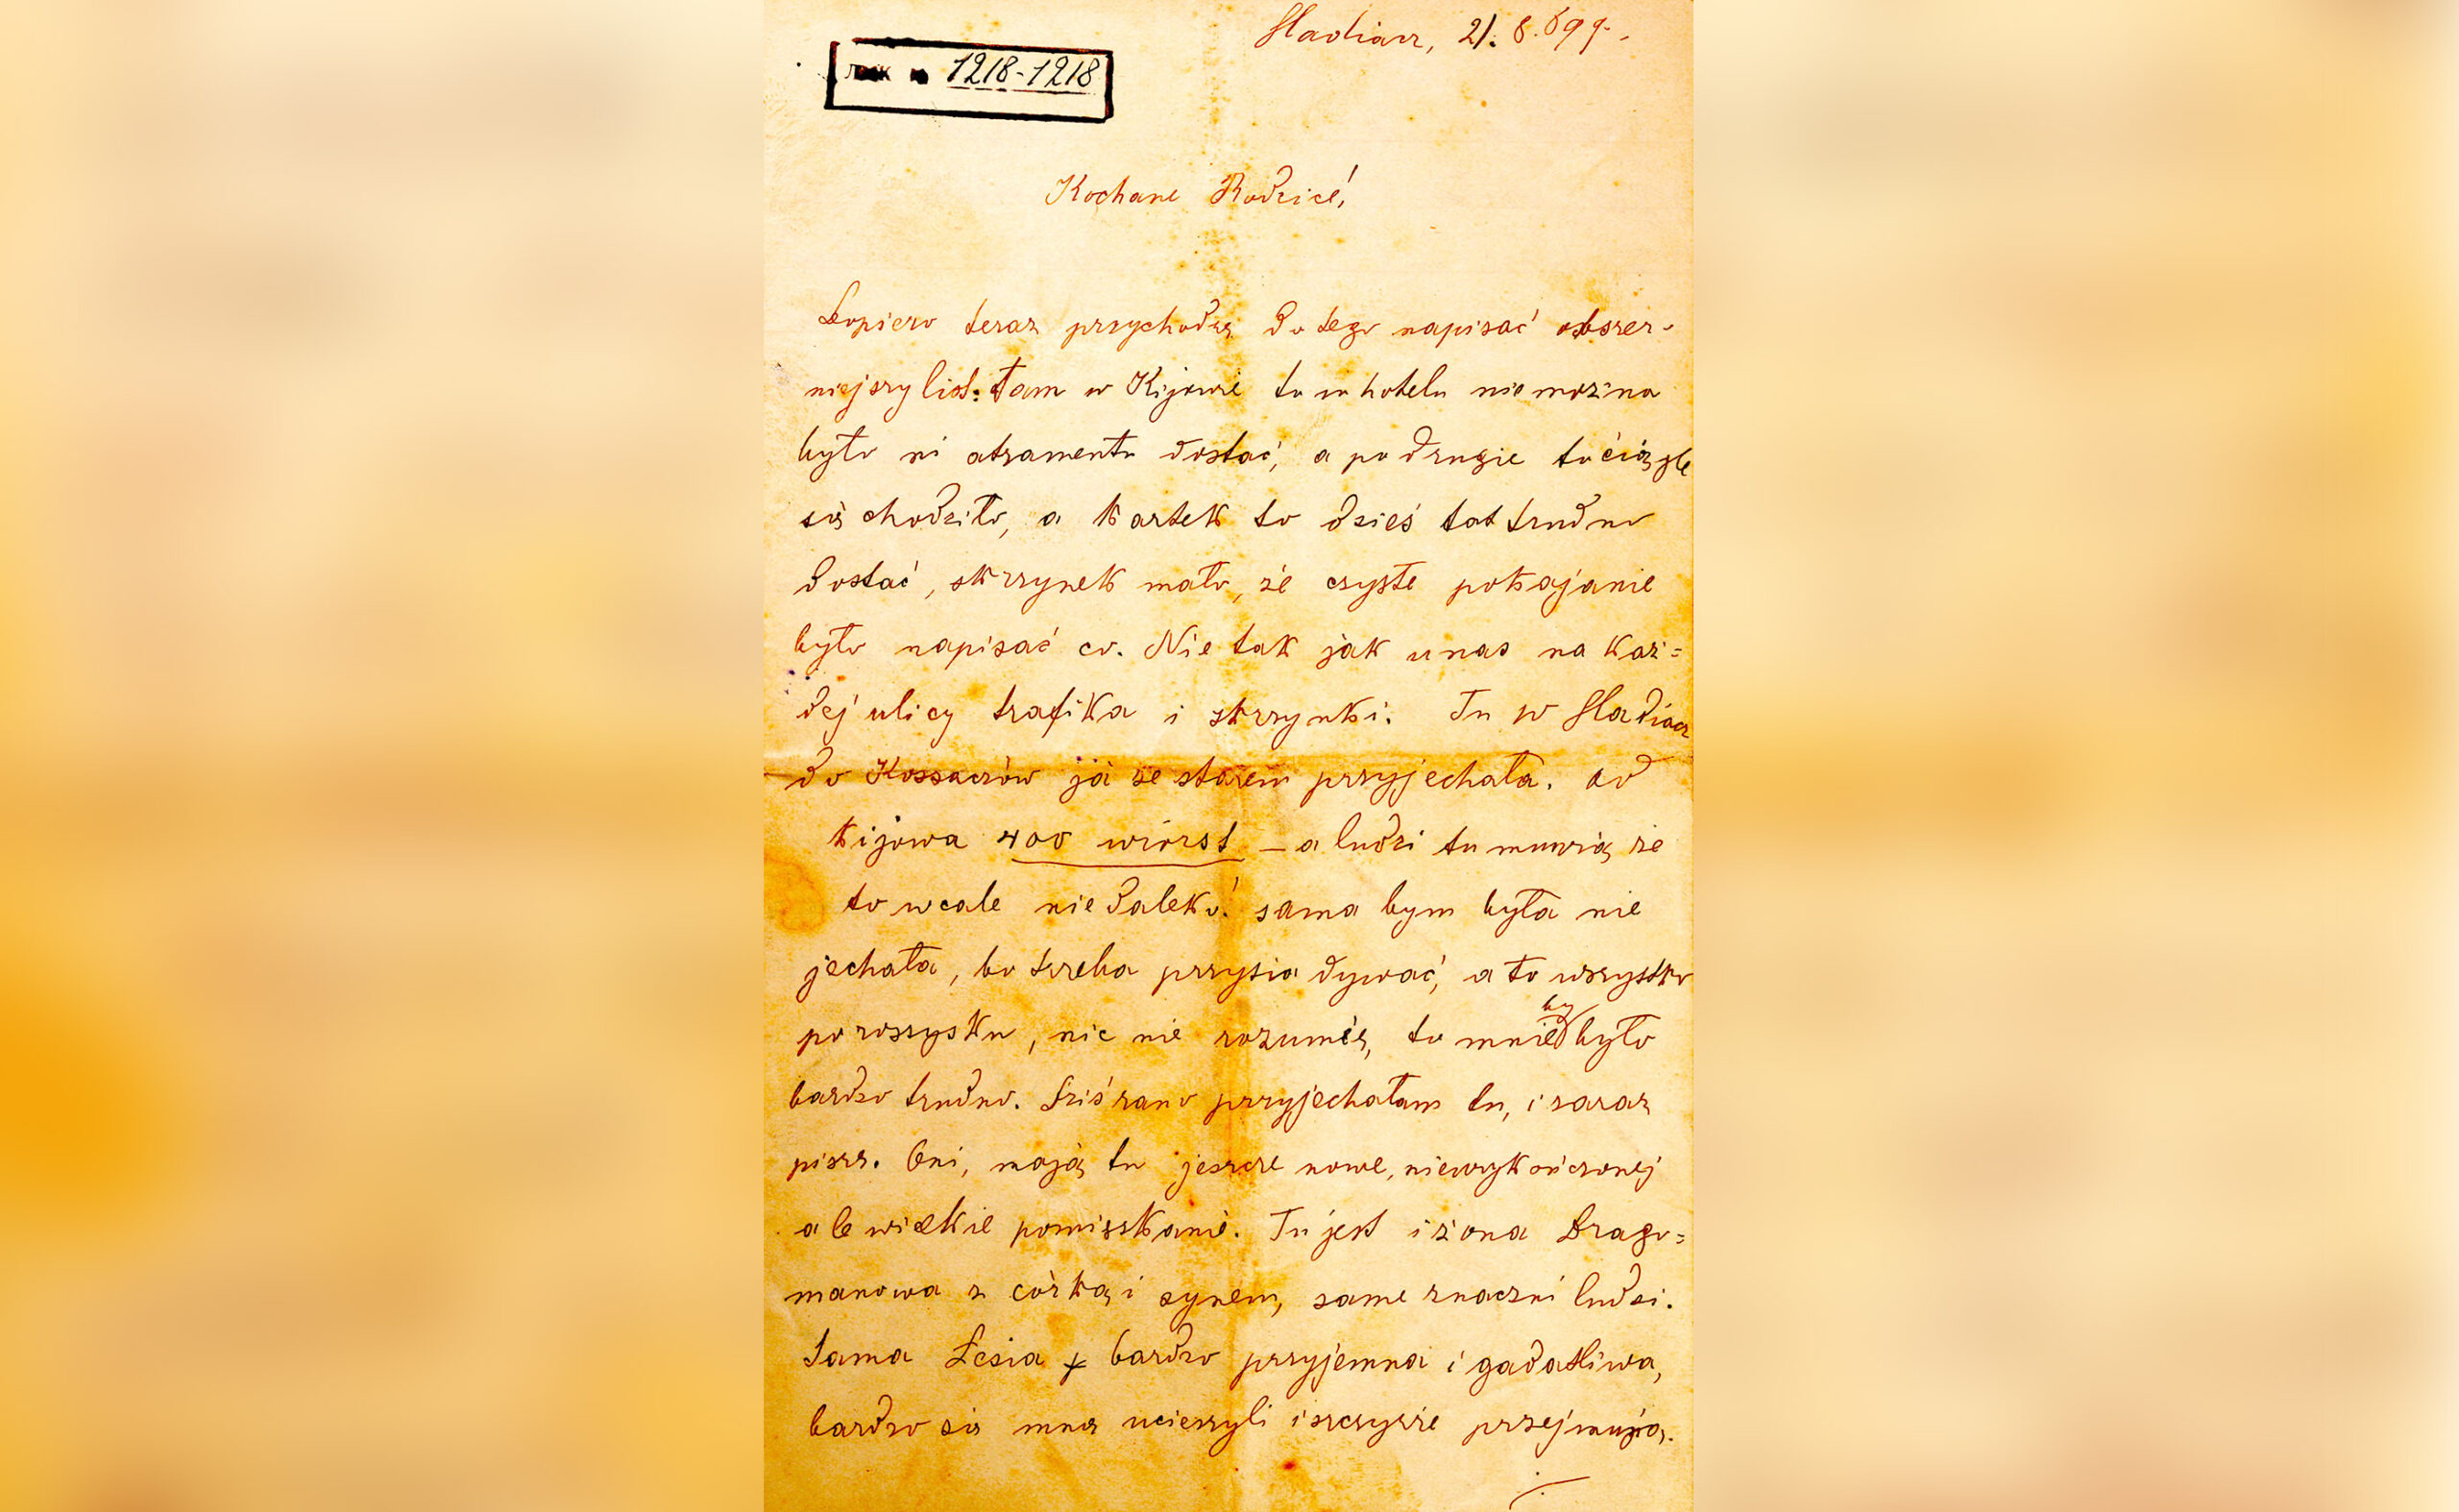 Hadiacz, 21. 8. 899.
1218-1218
Kochane Rodzice!
Dopiero teraz przychodzę do tego napisać obszer-
niejszy list: tam w Kijowie to w hotelu nie można
było ni atramentu dostać, a po drugie to ciągle
się chodziło, a kartek to dzieś tat trudno
dostać, skrzynek mało, że czyste pokajanie
było napisać co. Nie tak jak u nas na każ=
dej ulicy trafika i skrzynki. Tu w Hadiacz
do Kossaczów ja ze starem przyjechała. od
Kijowa 400 wiorst – a ludzi tu muwią że
to wcale nie daleko! sama bym była nie
jechała, bo trzeba przysiadywać, a to wszystko
po rossysku, nic nie rozumię, to mnie by było
bardzo trudno. Dziś rano przyjechałam tu, i zaraz
piszę. Oni, mają tu jeszcze nowe, niewykończonej
ale wielkie pomiszkanie. Tu jest i żona Drago=
manowa z córką i synem, same znaczni ludzi.
Sama Lesia bardzo przyjemna i gadatliwa,
bardzo się mną ucieszyli i szczyrże przejmują.